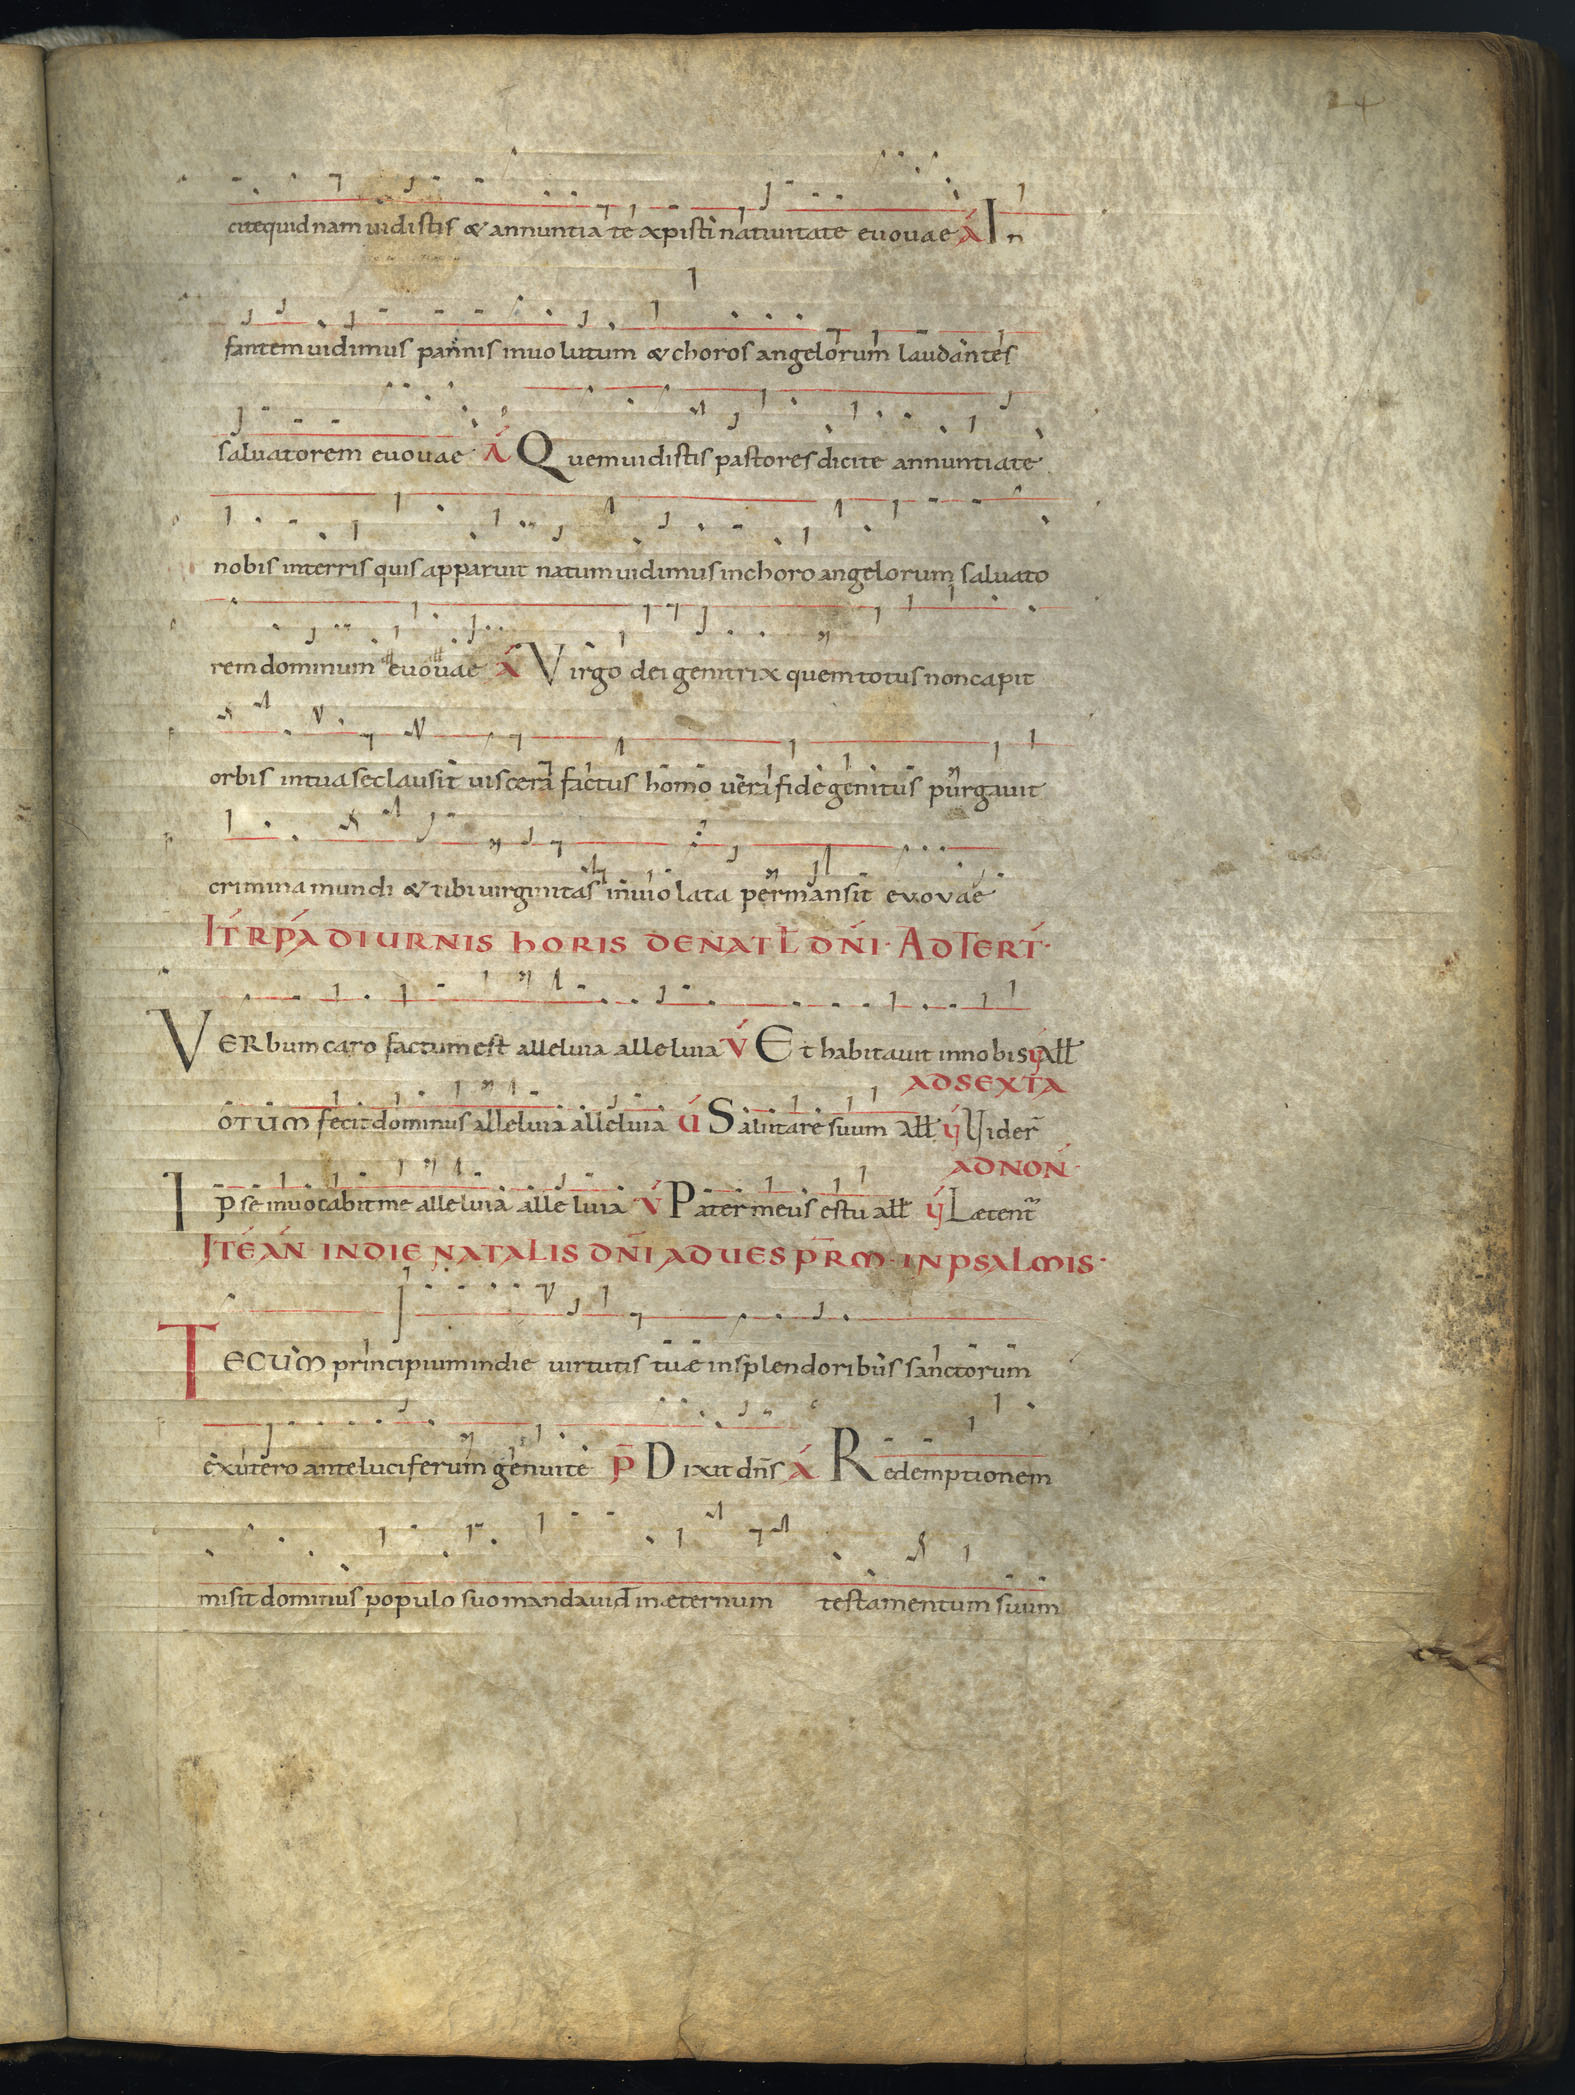 24
citequidnam uidistis & annuntiate xpisti natiuitate euouae A In
fantem uidimus pannis inuolutum & choros angelorum laudantes
saluatorem euouae A Quem uidistis pastores dicite annuntiate
nobis interris quis apparuit natum uidimus inchoro angelorum saluato
rem dominum euouae A Virgo dei genitrix quem totus non capit
orbis intua se clausit uiscera factus homo uera fide genitus purgauit
crimina mundi & tibi uirginitas inuiolata permansit euouae
IT RPA DIURNIS HORIS DE NATL DNI · AD TERT ·
VERbum caro factum est alleluia alleluia V Et habitauit innobis V All
AD SEXTA
OTUM fecit dominus alleluia alleluia V Salutare suum all V Uider
AD NON ·
Ipse inuocabit me alleluia alleluia V Pater meus es tu all V Lætent
ITE AN IN DIE NATALIS DNI AD UESPRM · IN PSALMIS ·
TECUM principium indie uirtutis tuæ insplendoribus sanctorum
exutero ante luciferum genui te P Dixit dns A Redemptionem
misit dominus populo suo mandauit inæternum testamentum suum